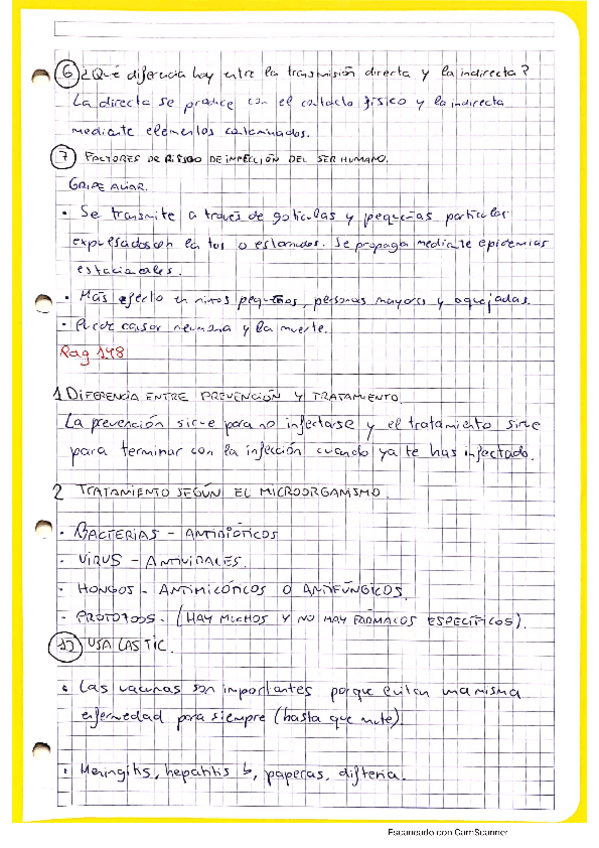 6 ¿Qué diferencia hay entre la transmisión directa y la indirecta?
La directa se produce con el contacto físico y la indirecta
mediante elementos contaminados.
7 FACTORES DE RIESGO DE INFECCIÓN DEL SER HUMANO.
GRIPE AVIAR.
• Se transmite a través de gotículas y pequeñas particular
expulsados con la tos o estornudos. Se propaga mediante epidemias
estacionales.
• Más efecto en niños pequeños, personas mayores y aquejadas.
• Puede causar neumonía y la muerte.
Pag 148
1 DIFERENCIA ENTRE PREVENCIÓN Y TRATAMIENTO.
La prevención sirve para no infectarse y el tratamiento sirve
para terminar con la infección cuando ya te has infectado.
2 TRATAMIENTO SEGÚN EL MICROORGANISMO.
• BACTERIAS - ANTIBIÓTICOS
• VIRUS - ANTIVIRALES.
• HONGOS - ANTIMICÓTICOS O ANTIFÚNGICOS.
• PROTOZOOS - (HAY MUCHOS Y NO HAY FÁRMACOS ESPECÍFICOS).
12 USA LAS TIC.
• Las vacunas son importantes porque evitan una misma
enfermedad para siempre (hasta que mute).
• Meningitis, hepatitis b, paperas, difteria.
Escaneado con CamScanner